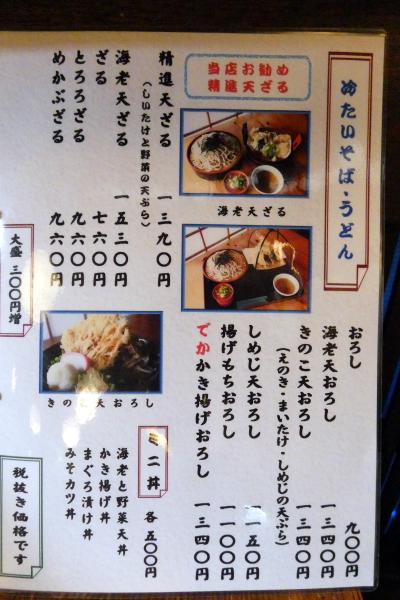 冷たいそば・うどん
当店お勧め
精進天ざる
海老天ざる
おろし 九〇〇円
海老天おろし 一三四〇円
きのこ天おろし 一三四〇円
(えのき・まいたけ・しめじの天ぷら)
しめじ天おろし 一一五〇円
揚げもちおろし 一一〇〇円
でかかき揚げおろし 一三四〇円
精進天ざる 一三九〇円
(しいたけと野菜の天ぷら)
海老天ざる 一五三〇円
ざる 七六〇円
とろろざる 九六〇円
めかぶざる 九六〇円
大盛 三〇〇円増
きのこ天おろし
ミニ丼 各 五〇〇円
海老と野菜天丼
かき揚げ丼
まぐろ漬け丼
みそカツ丼
税抜き価格です